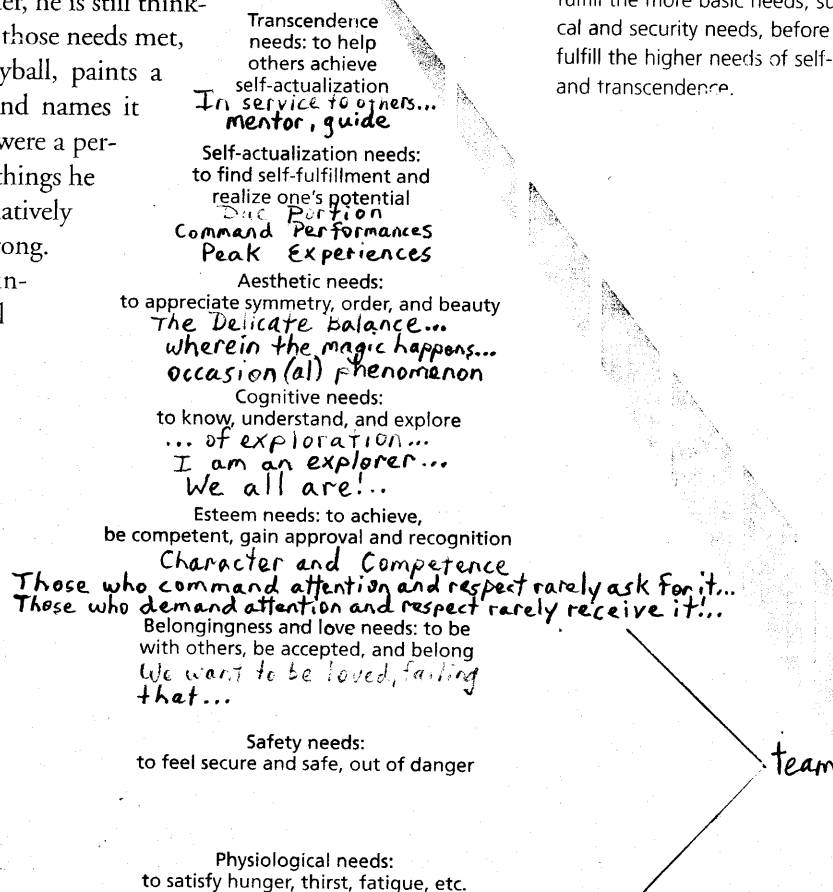 ter, he is still think-
those needs met,
yball, paints a
nd names it
were a per-
things he
atively
rong.
in-
Transcendence
needs: to help
others achieve
self-actualization
In service to others...
mentor, guide
Self-actualization needs:
to find self-fulfillment and
realize one's potential
Due Portion
Command Performances
Peak Experiences
Aesthetic needs:
to appreciate symmetry, order, and beauty
The Delicate balance...
wherein the magic happens...
occasion(al) phenomenon
Cognitive needs:
to know, understand, and explore
... of exploration...
I am an explorer...
We all are!..
Esteem needs: to achieve,
be competent, gain approval and recognition
Character and Competence
Those who command attention and respect rarely ask for it...
Those who demand attention and respect rarely receive it!..
Belongingness and love needs: to be
with others, be accepted, and belong
We want to be loved, failing
that...
Safety needs:
to feel secure and safe, out of danger
Physiological needs:
to satisfy hunger, thirst, fatigue, etc.
team
fulfill the more basic needs, su
cal and security needs, before
fulfill the higher needs of self-
and transcendence.